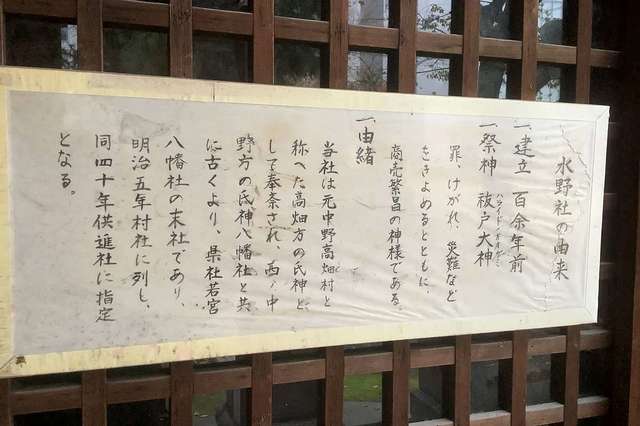 水野社の由来
一、建立 百余年前
一、祭神 祓戸大神
ハライド・オオカミ
罪、けがれ、災難など
をきよめるとともに、
商売繁昌の神様である。
一、由緒
当社は元中野高畑村と
称へた高畑方の氏神と
して奉斎され、西ノ中
野方の氏神八幡社と共
に古くより、県社若宮
八幡社の末社であり、
明治五年村社に列し、
同四十年供進社に指定
となる。